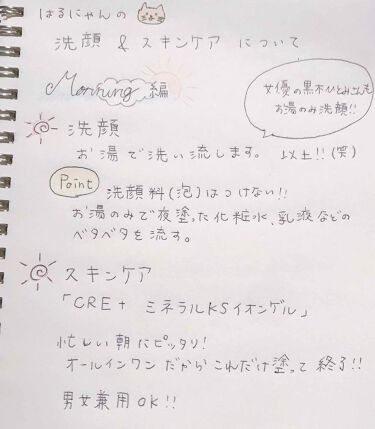 はるにゃんの
洗顔 & スキンケア について
Morning 編
女優の黒木ひとみさんも
お湯のみ洗顔!!
洗顔
お湯で洗い流します。 以上!!(笑)
Point
洗顔料(泡)はつけない!!
お湯のみで夜塗った化粧水、乳液などの
ベタベタを流す。
スキンケア
「CRE+ ミネラルKSイオンゲル」
忙しい朝にピッタリ!
オールインワンだからこれだけ塗って終了!!
男女兼用OK!!